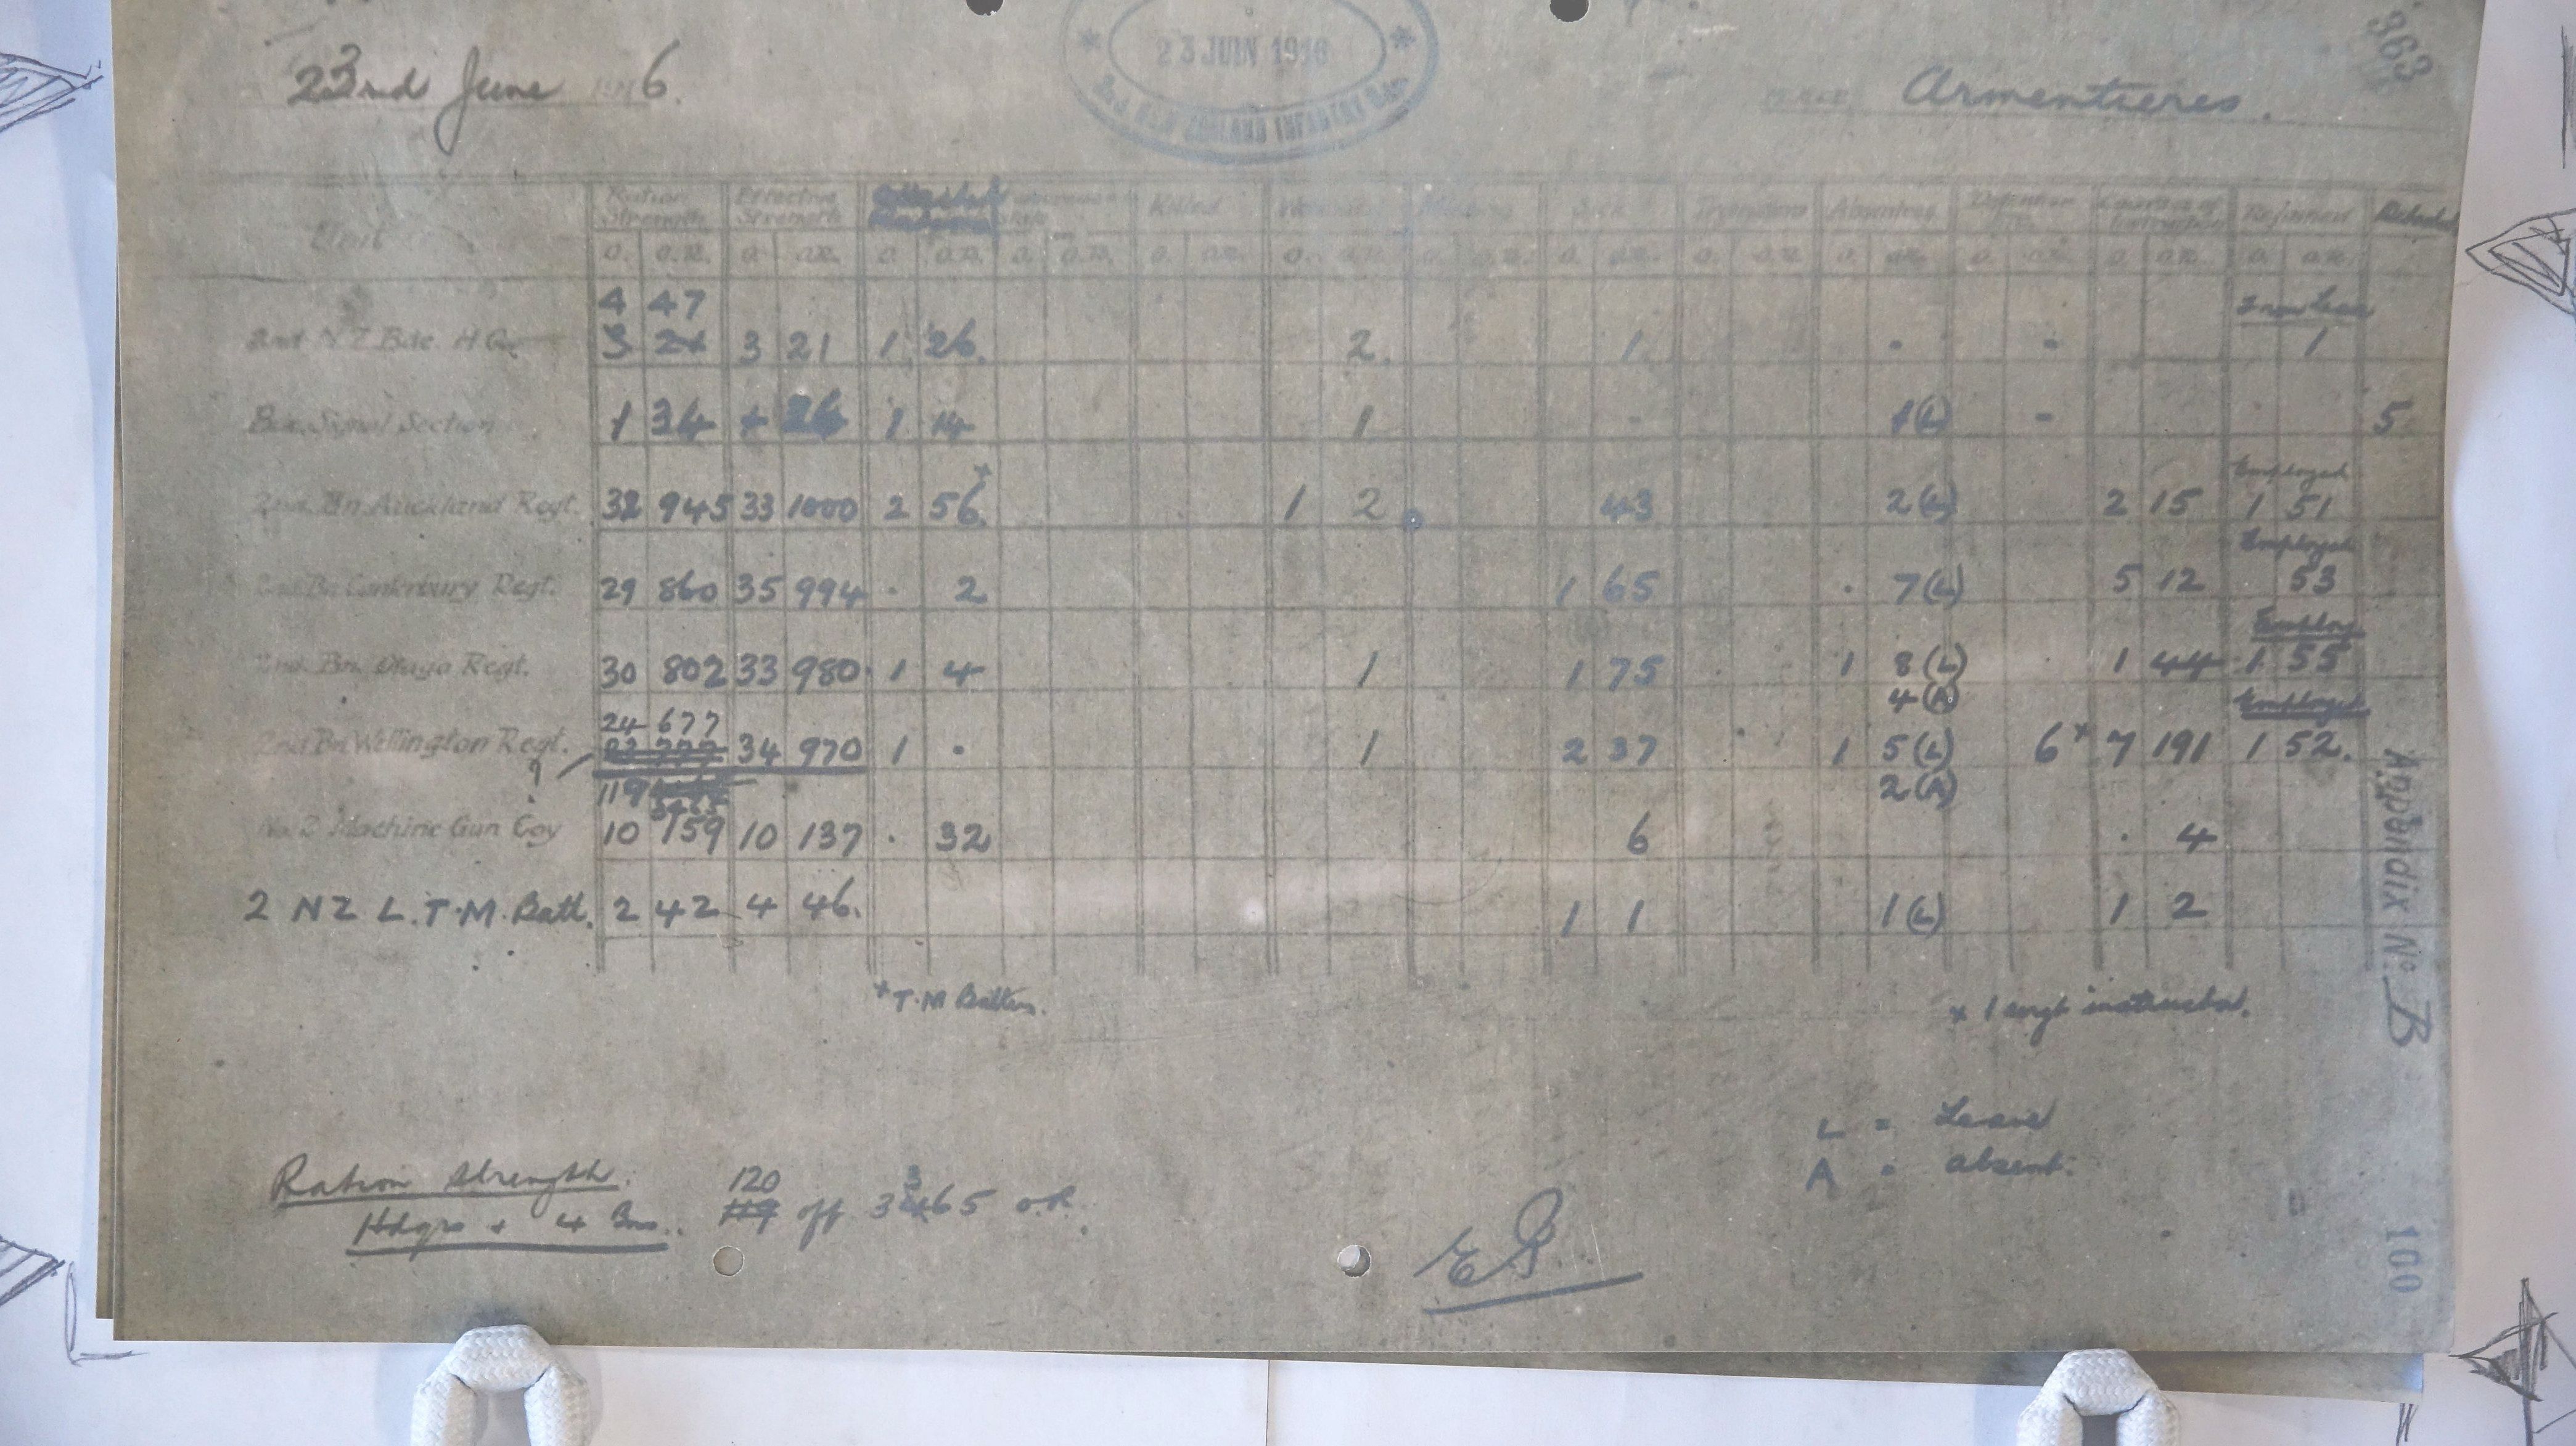 363
23rd June 1916.
23 JUIN 1916
2nd NEW ZEALAND INFANTRY Bde
Armentieres.
Unit
Ration Strength Effective Strength Attached Killed Wounded Missing Sick Prisoners Absentees Detention Courses of Instruction Rejoined
O. O.R. O. O.R. O. O.R. O. O.R. O. O.R. O. O.R. O. O.R. O. O.R. O. O.R. O. O.R. O. O.R. O. O.R. O. O.R.
4 47 From Leave
2nd N Z Bde H Q. 3 21 3 21 1 26. 2. 1 - - 1
Bde. Signal Section 1 34 1 26 1 14 1 - 1(L) - 5
+ Employed
2nd Bn. Auckland Regt. 32 945 33 1000 2 56. 1 2 43 2(L) 2 15 1 51
Employed
2nd Bn. Canterbury Regt. 29 860 35 994 . 2 1 65 . 7(L) 5 12 53
Employ.
2nd Bn. Otago Regt. 30 802 33 980. 1 4 1 1 75 1 8(L) 1 44 1 55
4(A) Employed
24 677
2nd Bn Wellington Regt. 34 970 1 . 1 2 37 1 5(L) 6+ 7 191 1 52.
? 119 2(A)
3465
No. 2 Machine Gun Coy 10 159 10 137 . 32 6 . 4
2 NZ L.T.M. Batt. 2 42 4 46. 1 1 1(L) 1 2
+ T.M Battery.
+ 1 sergt instructor.
Appendix No. B
L = Leave
A = absent.
Ration Strength.
Hdqrs + 4 Bns.. 120 119 off 3465 o.R.
3
100